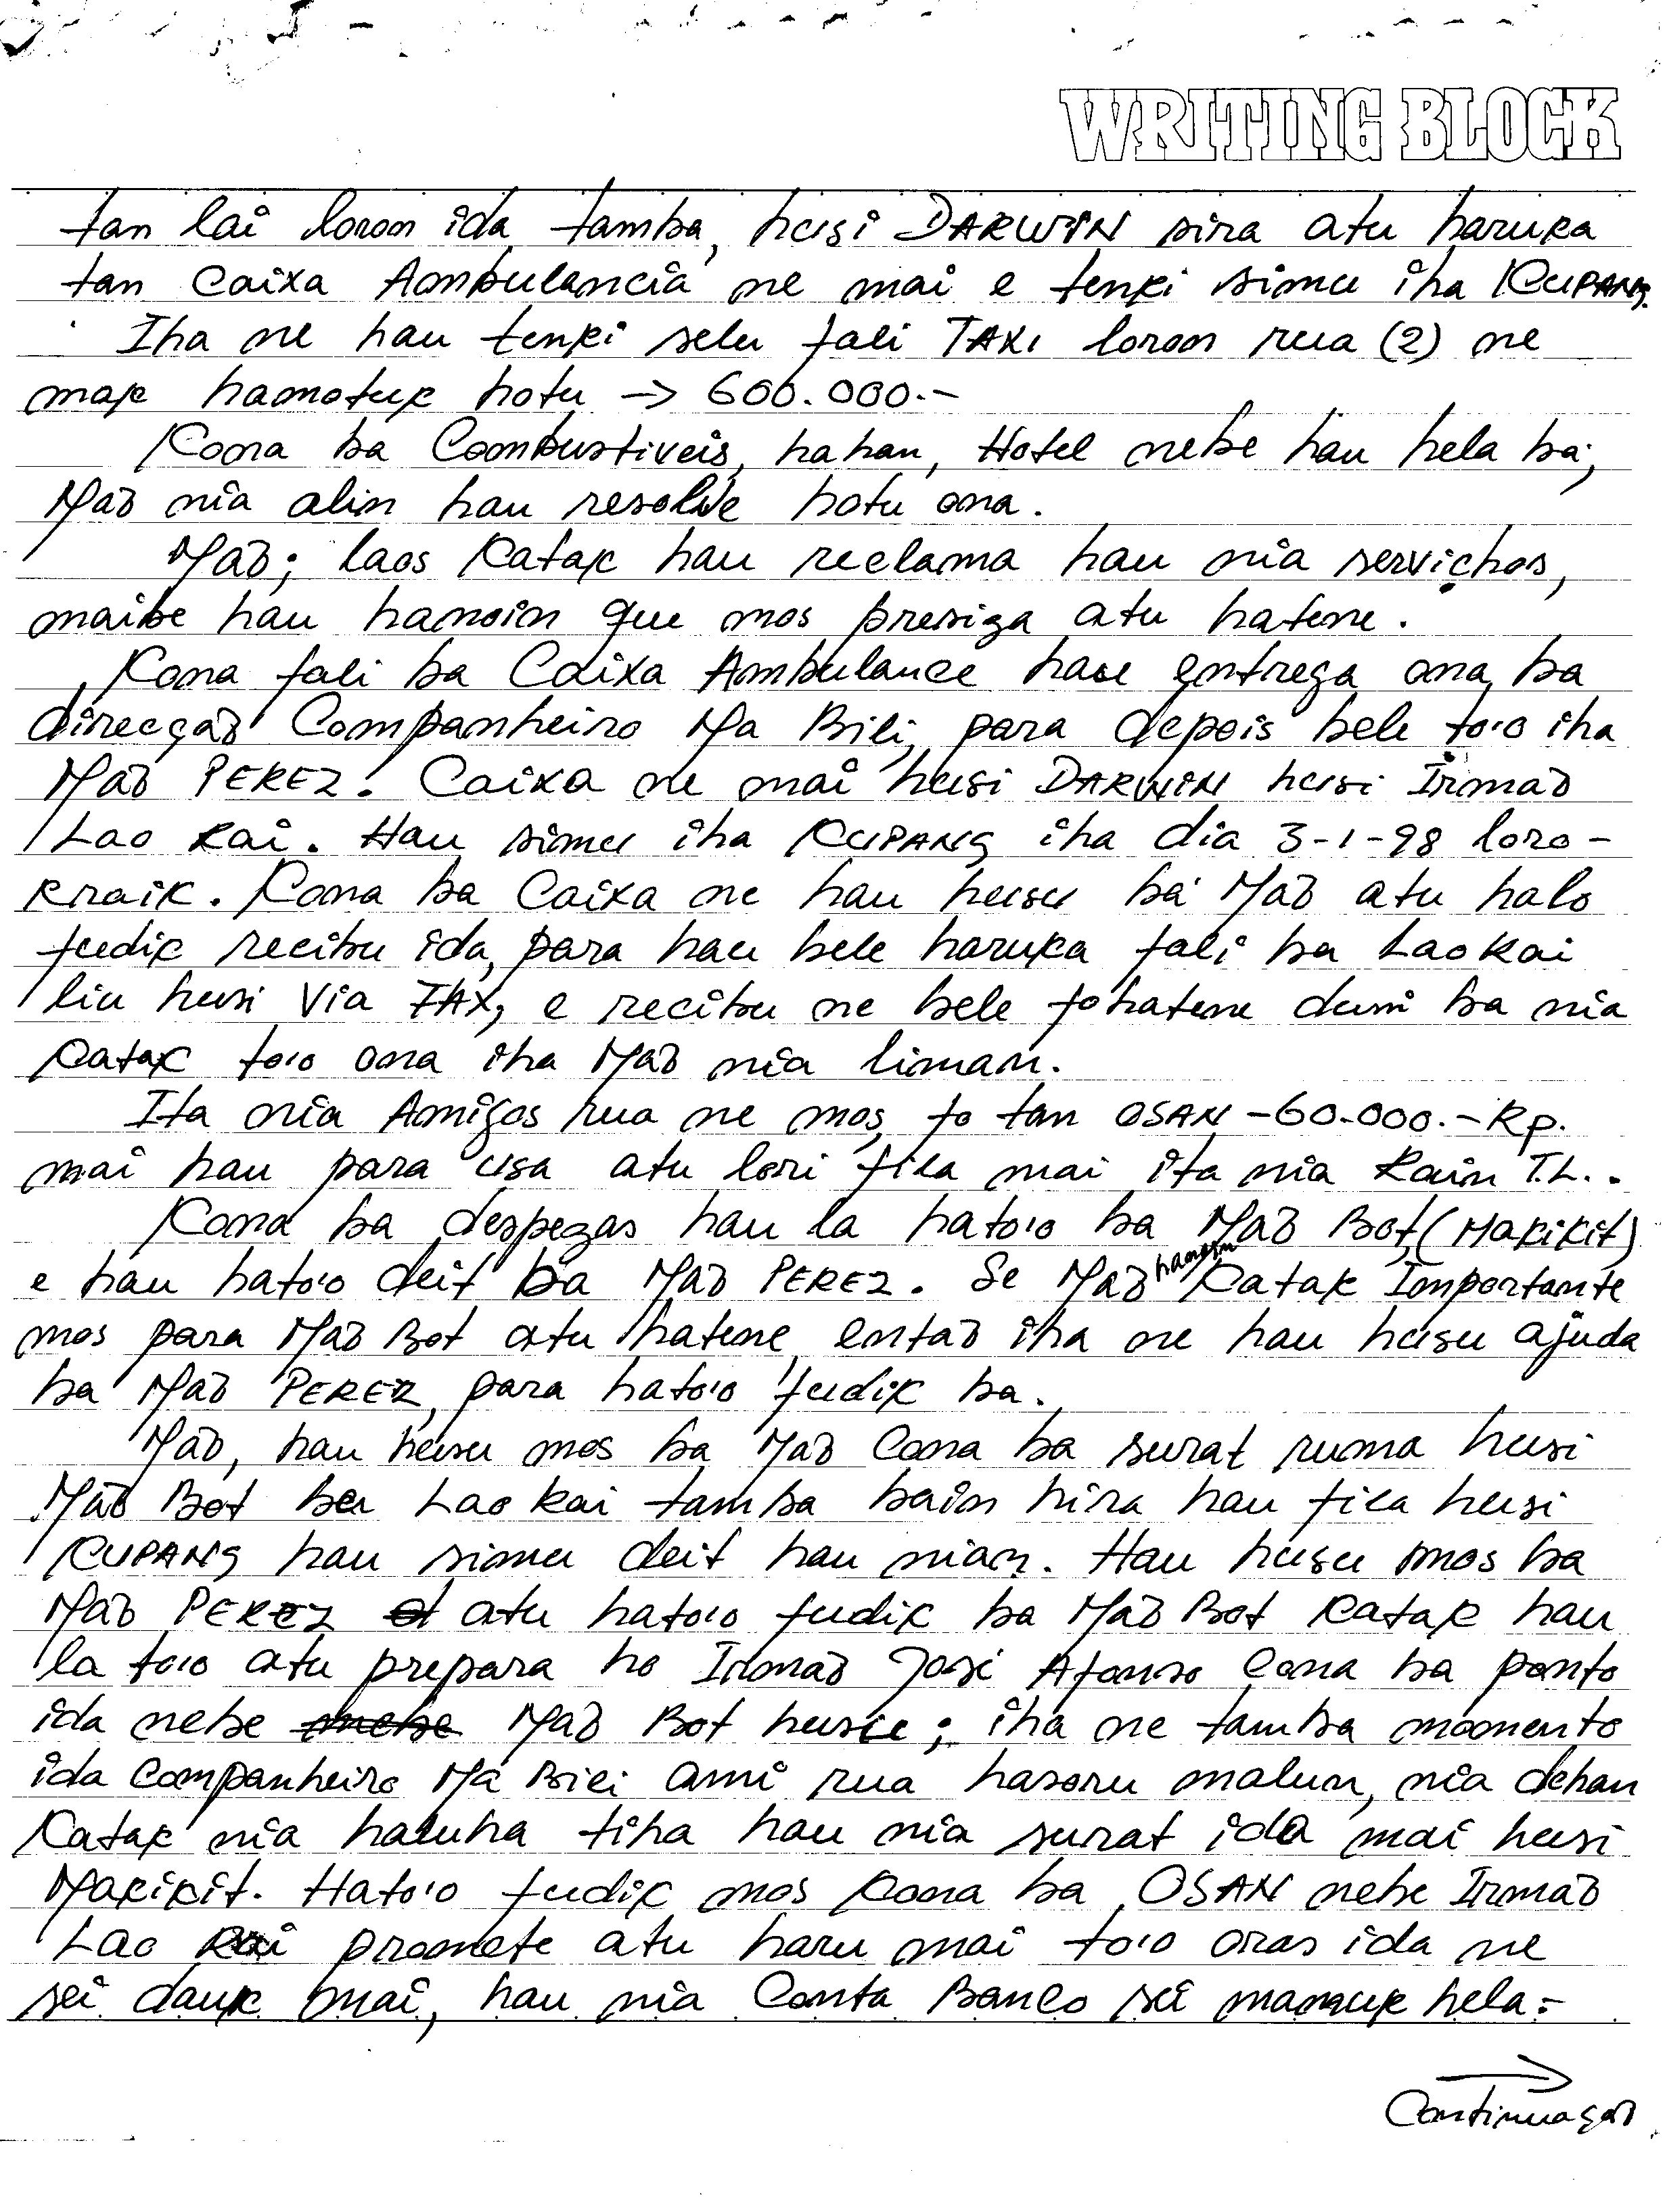 WRITING BLOCK
tan lai loron ida tamba, husi DARWIN sira atu haruka
tan Caixa Ambulancia ne mai e tenki simu iha KUPANG.
Iha ne hau tenki selu fali TAXI loron rua (2) ne
mak hamotuk hotu -> 600.000.-
Kona ba Combustiveis, hahan, Hotel nebe hau hela ba;
Maõ nia alin hau resolve hotu ona.
Maõ; laos Katak hau reclama hau nia servichos,
maibe hau hanoin que mos presiza atu hatene.
Kona fali ba Caixa Ambulance hau entrega ona ba
direcçaõ Companheiro Ma Bili, para depois bele to'o iha
Maõ PEREZ. Caixa ne mai husi DARWIN husi Irmaõ
Lao Kai. Hau simu iha KUPANG iha dia 3-1-98 loro-
kraik. Kona ba Caixa ne hau husu ba Maõ atu halo
tudik recibu ida, para hau bele haruka fali ba Laokai
liu husi Via FAX, e recibu ne bele fo hatene duni ba nia
Katak to'o ona iha Maõ nia liman.
Ita nia Amigos rua ne mos fo tan OSAN -60.000.-Rp.
mai hau para usa atu lori fila mai ita nia Rain T.L..
Kona ba despezas hau la hato'o ba Maõ Bot, (Makikit)
e hau hato'o deit ba Maõ PEREZ. Se Maõ hanoin Katak Importante
mos para Maõ Bot atu hatene, entaõ iha ne hau husu ajuda
ba Maõ PEREZ, para hato'o tudik ba.
Maõ, hau husu mos ba Maõ Cona ba surat ruma husi
Maõ Bot ba Lao Kai tamba bain hira hau fila husi
KUPANG hau simu deit hau nian. Hau husu mos ba
Maõ PEREZ atu hato'o tudik ba Maõ Bot Katak hau
la to'o atu prepara ho Irmaõ José Afonso Cona ba ponto
ida nebe Maõ Bot husu; iha ne tamba momento
ida Companheiro Ma Bili ami rua hasoru malun, nia dehan
Katak nia haluha tiha hau nia surat ida mai husi
Makikit. Hato'o tudik mos Kona ba OSAN nebe Irmaõ
Lao Kai promete atu haru mai to'o oras ida ne
sei dauk mai, hau nia Conta Banco sei mamuk hela.-
Continuaçaõ